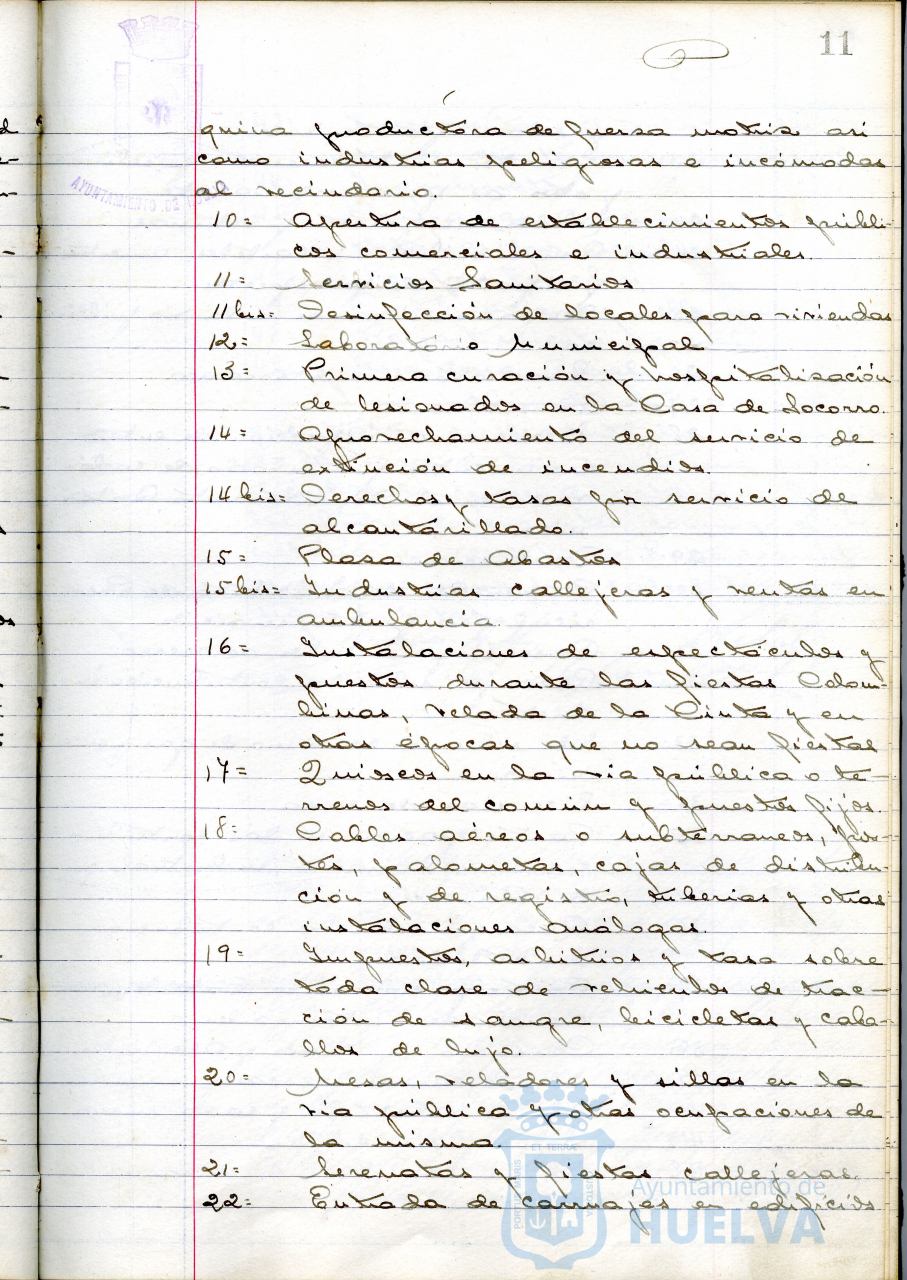 11
quina productora de fuersa motriz así
como industrias peligrosas e incómodas
al vecindario.
10= Apertura de establecimientos públi-
cos comerciales e industriales.
11= Servicios Sanitarios
11 bis= Desinfección de locales para viviendas
12= Laboratório Municipal
13= Primera curación y hospitalisación
de lesionados en la Casa de Socorro.
14= Aprovechamiento del servicio de
extinción de incendios.
14 bis= Derechos y tasas por servicio de
alcantarillado.
15= Plasa de Abastos
15 bis= Industrias callejeras y ventas en
ambulancia.
16= Instalaciones de espectáculos y
puestos durante las fiestas Colom-
binas, velada de la Cinta y en
otras épocas que no sean fiestas
17= Quioscos en la via pública o te-
rrenos del común y puestos fijos.
18= Cables aéreos o subterraneos, pos-
tes, palometas, cajas de distribu-
ción y de registro, tuberias y otras
instalaciones análogas.
19= Impuestos, arbitrios y tasa sobre
toda clase de vehiculos de trac-
ción de sangre, bicicletas y caba-
llos de lujo.
20= Mesas, veladores y sillas en la
via pública y otras ocupaciones de
la misma.
21= Serenatas y fiestas callejeras.
22= Entrada de carruajes en edificios
AYUNTAMIENTO DE
Ayuntamiento de
HUELVA